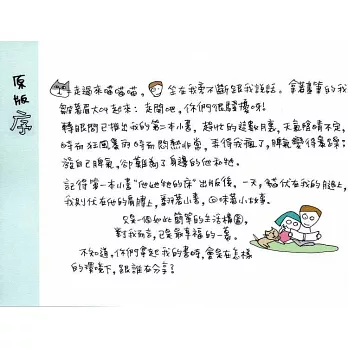 原版序
走過來喵喵喵，坐在我旁不斷跟我說話。拿著畫筆的我
皺著眉大叫起來：走開吧，你們很騷擾呀！
轉眼間已推出我的第二本小書，趕忙的這數月裏，天氣陰晴不定，
時而狂風暴雨時而悶熱非常，弄得我瘋了，脾氣變得暴躁；
發自己脾氣，卻難為了身邊的他和牠。
記得第一本小書“他她牠的床”出版後，一天，貓伏在我的腿上，
我則伏在他的肩膊上，翻著小書，回味著小故事。
只是一個如此簡單的生活構圖，
對我而言，已是最幸福的一幕。
不知道，你們拿起我的書時，會是在怎樣
的環境下，跟誰在分享？